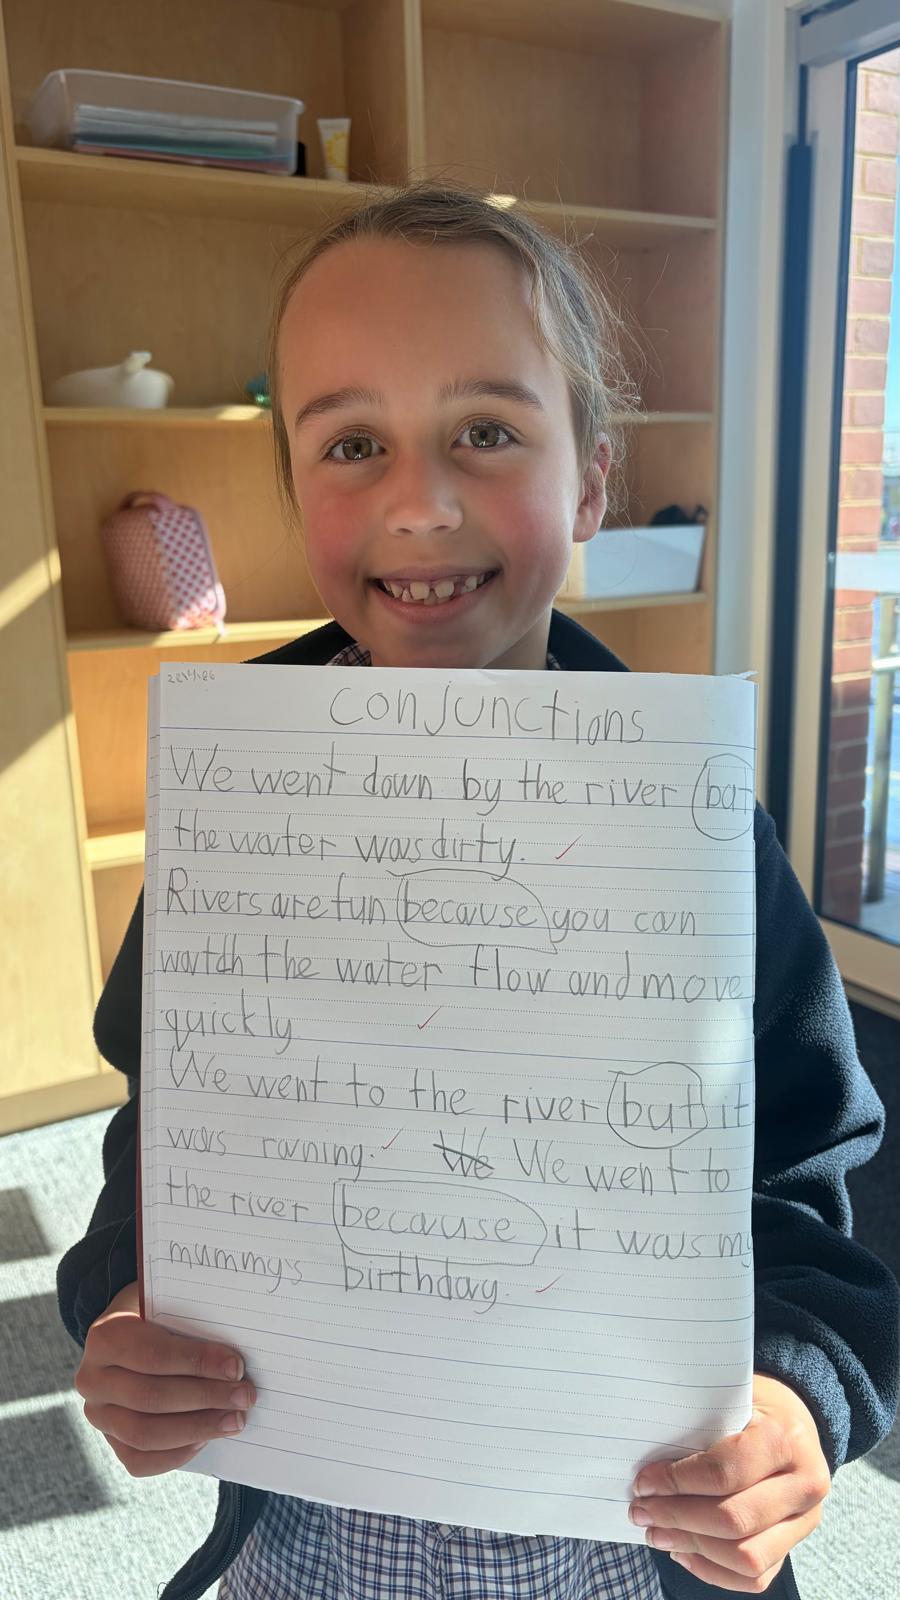 conjunctions
We went down by the river but
the water was dirty.
Rivers are fun because you can
watch the water flow and move
quickly
We went to the river but it
was raining. We We went to
the river because it was my
mummy's birthday.